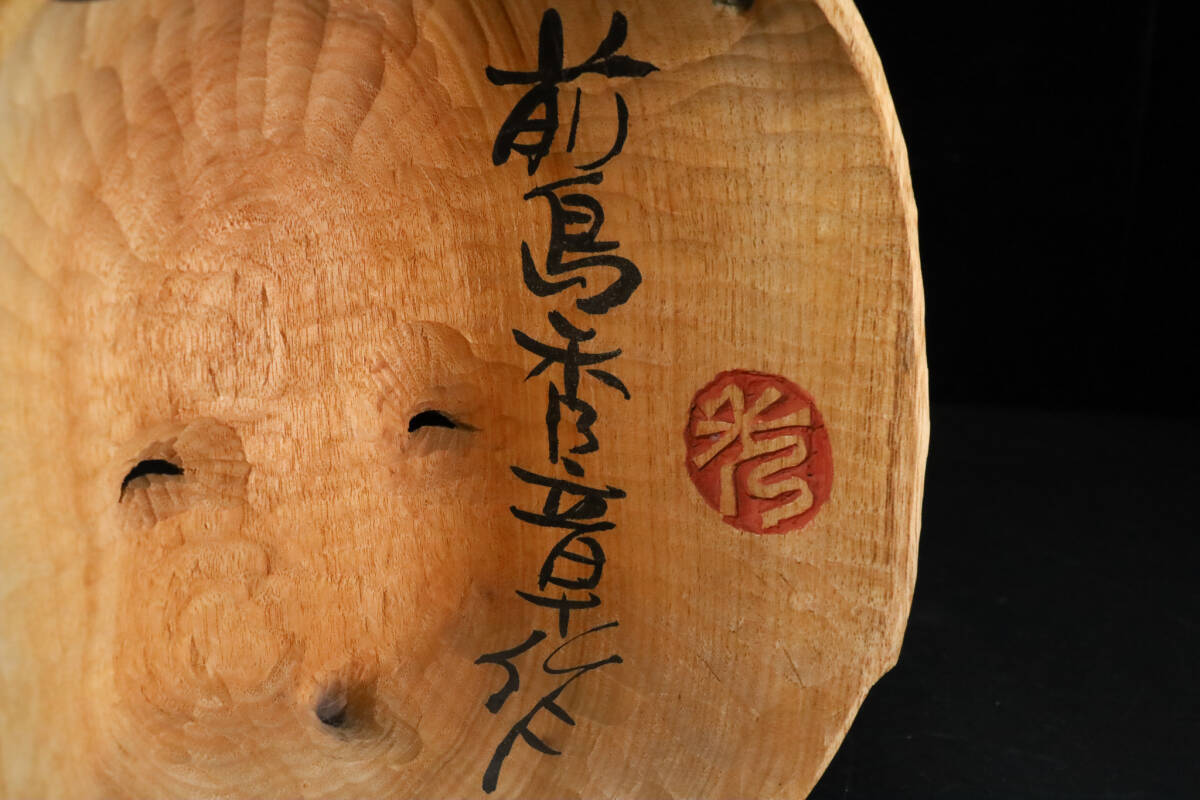 前島秀章作